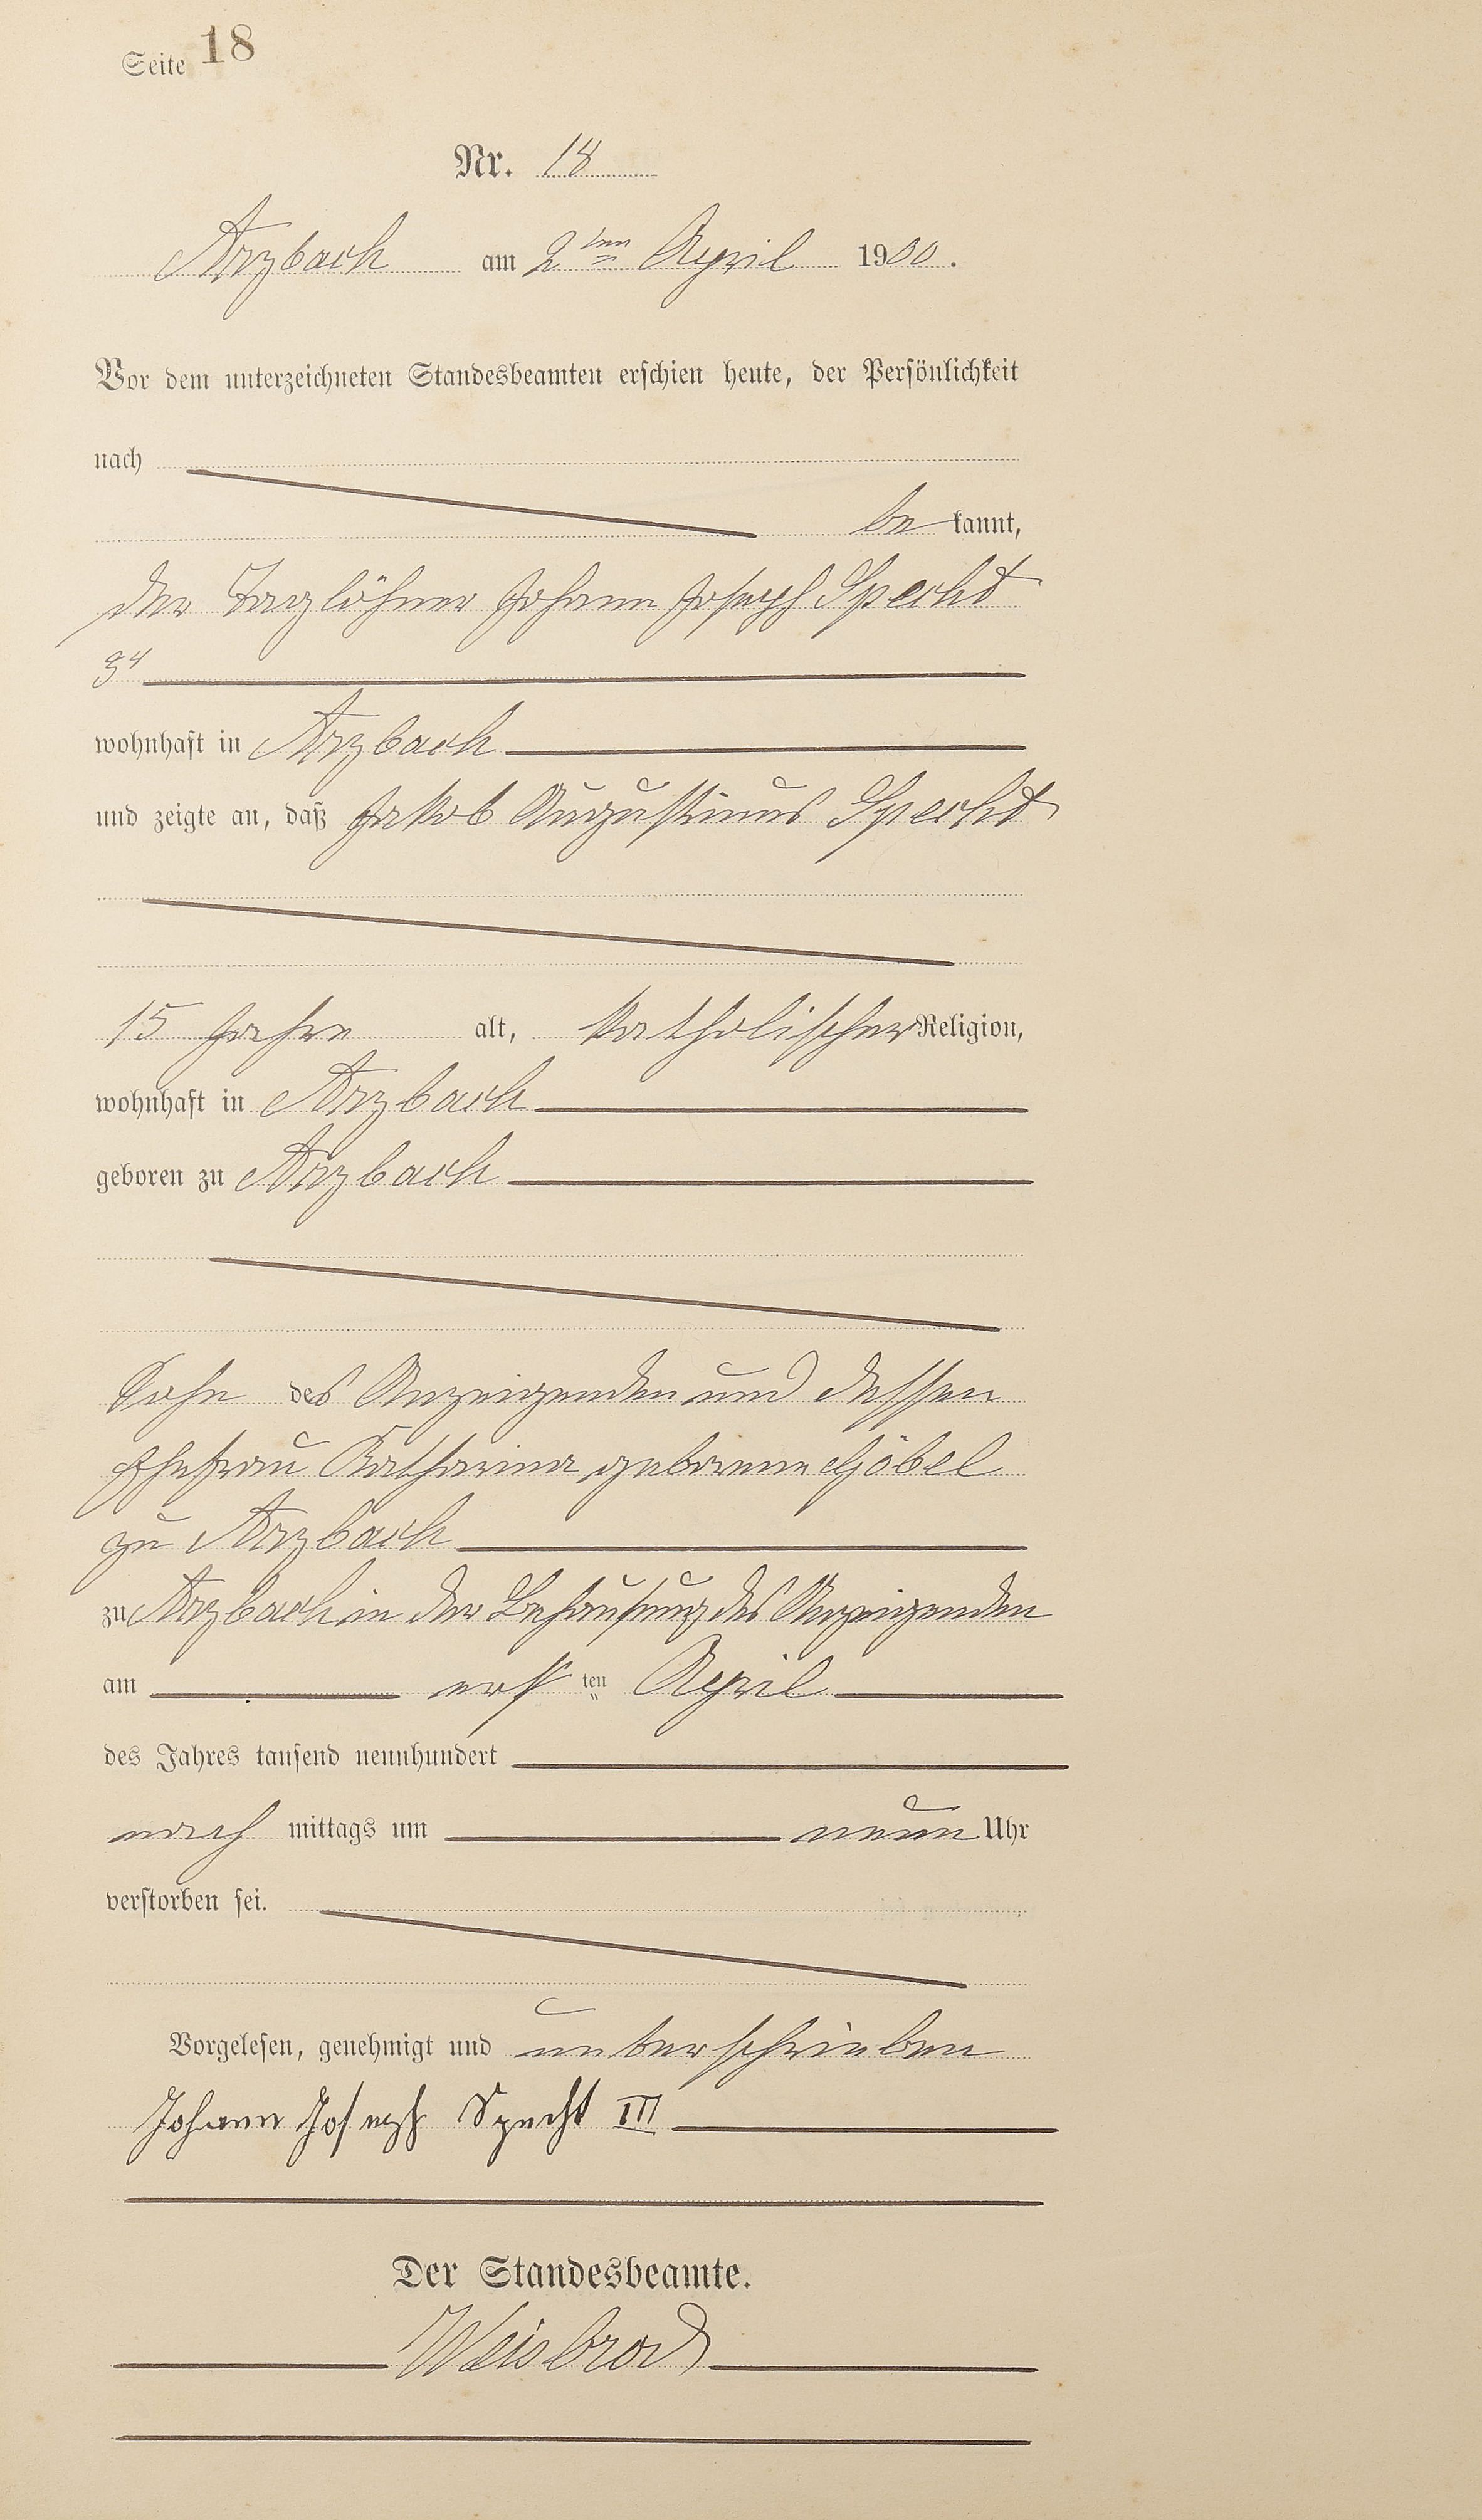 Seite 18
Nr. 18
Arzbach am 2ten April 1900.
Vor dem unterzeichneten Standesbeamten erschien heute, der Persönlichkeit
nach
be kannt,
der Taglöhner Johann Joseph Specht
3ter
wohnhaft in Arzbach
und zeigte an, daß Jakob Augustinus Specht
15 Jahre alt, katholischer Religion,
wohnhaft in Arzbach
geboren zu Arzbach
Sohn des Anzeigenden und dessen
Ehefrau Katharina geborene Göbel
zu Arzbach
zu Arzbach in der Behausung des Anzeigenden
am ersten April
des Jahres tausend neunhundert
nach mittags um neun Uhr
verstorben sei.
Vorgelesen, genehmigt und unterschrieben
Johann Joseph Specht III
Der Standesbeamte.
Weisbrod